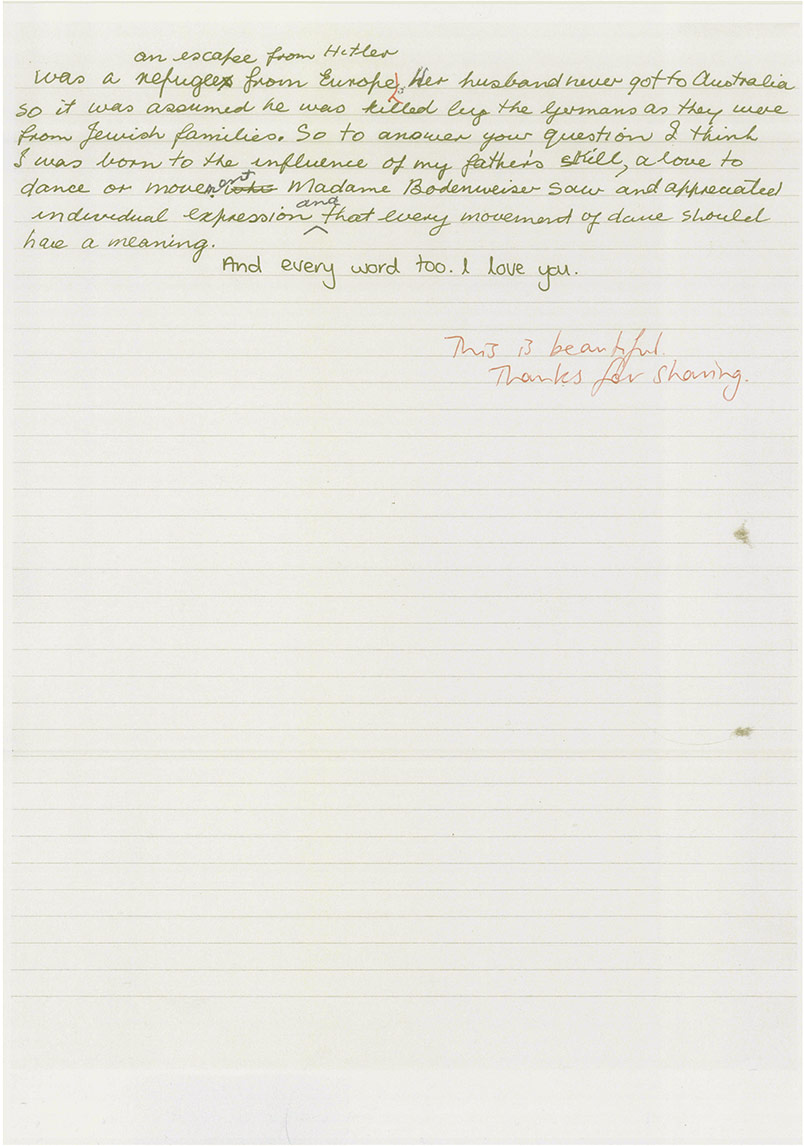 an escapee from Hitler
was a refugee from Europe, Her husband never got to Australia
so it was assumed he was killed by the Germans as they were
from Jewish families. So to answer your question I think
I was born to the influence of my father's skill, a love to
dance or movement Madame Bodenweiser saw and appreciated
individual expression and that every movement of dance should
have a meaning.
And every word too. I love you.
This is beautiful.
Thanks for sharing.